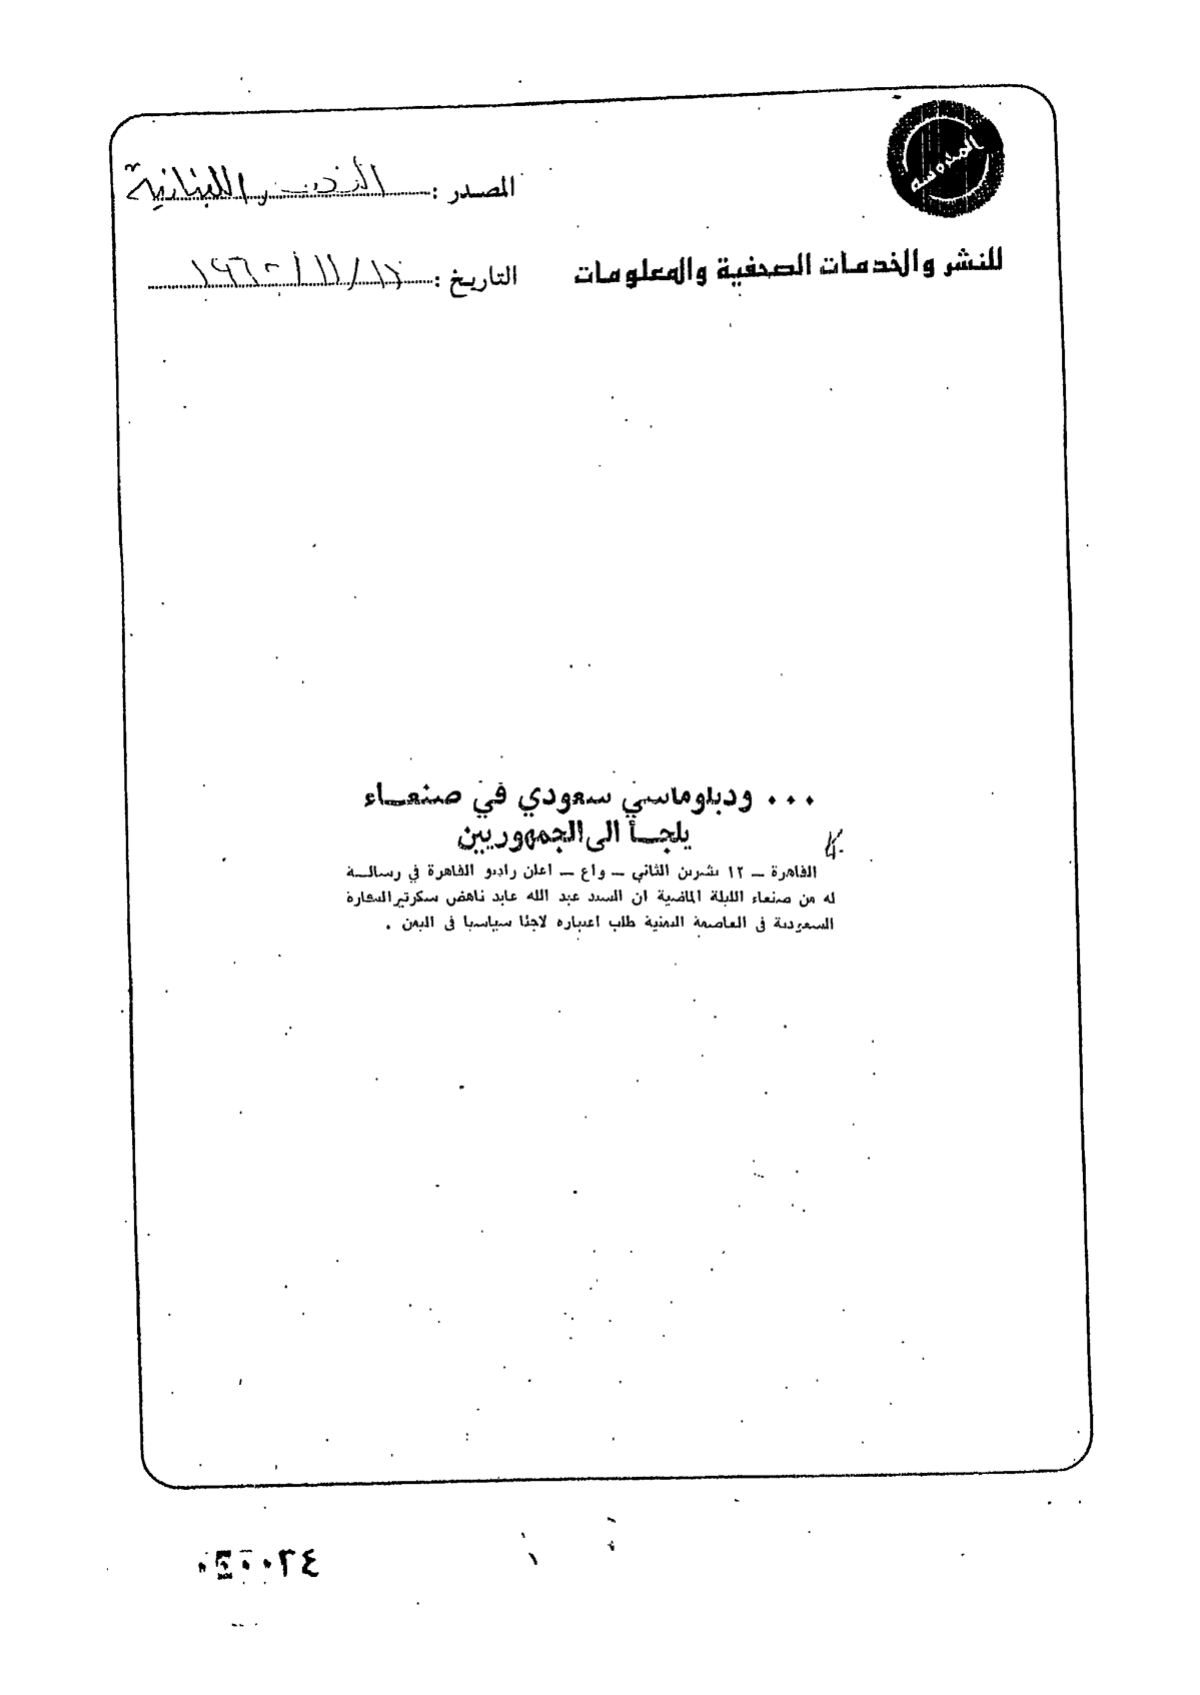 المدوسة
المصدر : اللبنانية
للنشر والخدمات الصحفية والمعلومات
التاريخ : ١٩٦٢/١١/١٢
... ودبلوماسي سعودي في صنعـــاء
يلجــأ الى الجمهوريين
القاهرة ــ ١٢ تشرين الثاني ــ واع ــ اعلن راديو القاهرة في رسالــة
له من صنعاء الليلة الماضية ان السيد عبد الله عابد ناهض سكرتير السفارة
السعودية في العاصمة اليمنية طلب اعتباره لاجئا سياسيا في اليمن .